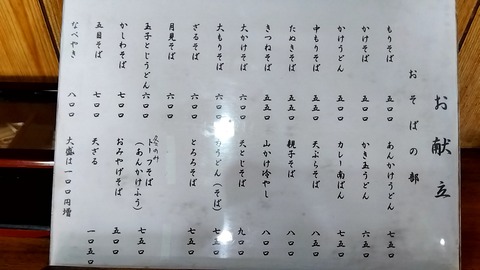 お献立
おそばの部
もりそば 五〇〇
かけそば 五〇〇
かけうどん 五〇〇
中もりそば 五五〇
たぬきそば 五五〇
きつねそば 五五〇
大かけそば 六〇〇
大もりそば 六〇〇
ざるそば 六〇〇
月見そば 六〇〇
玉子とじうどん 六〇〇
かしわそば 七〇〇
五目そば 七〇〇
なべやき 八〇〇
あんかけうどん 七五〇
かき玉うどん 六五〇
カレー南ばん 七五〇
天ぷらそば 八五〇
親子そば 八〇〇
山かけ冷やし 八〇〇
天とじそば 九〇〇
うどん(そば) 七五〇
とろろそば 七五〇
冬のみ
トーフそば
(あんかけふう) 七五〇
おみやげそば 五〇〇
天ざる 一〇五〇
大盛は一〇〇円増